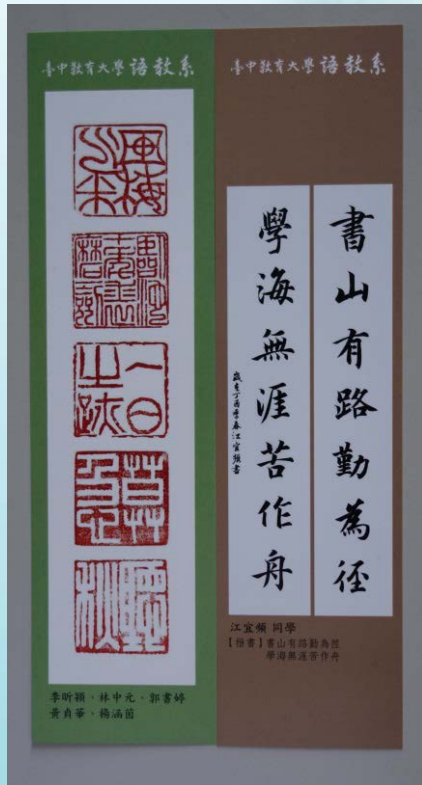 臺中教育大學語教系
一日
李昕穎、林中元、郭書婷
黃貞華、楊涵茵
臺中教育大學語教系
書山有路勤為徑
學海無涯苦作舟
丁酉季春江宜頻書
江宜頻 同學
【楷書】書山有路勤為徑
學海無涯苦作舟